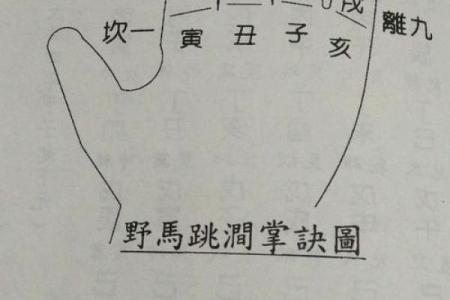 戌
坎一 寅 丑 子 亥 離九
野馬跳澗掌訣圖